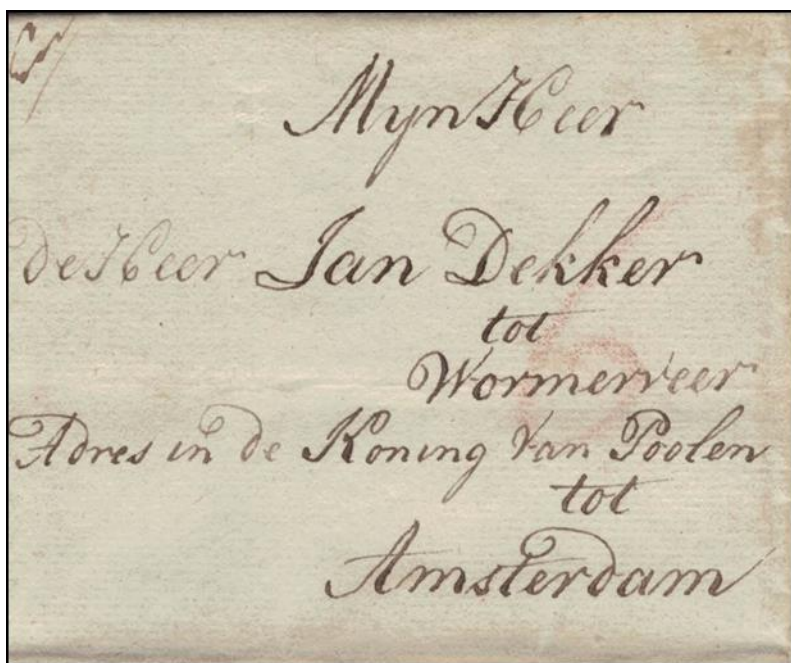 Myn Heer
de Heer Jan Dekker
tot
Wormerveer
Adres in de Koning van Poolen
tot
Amsterdam